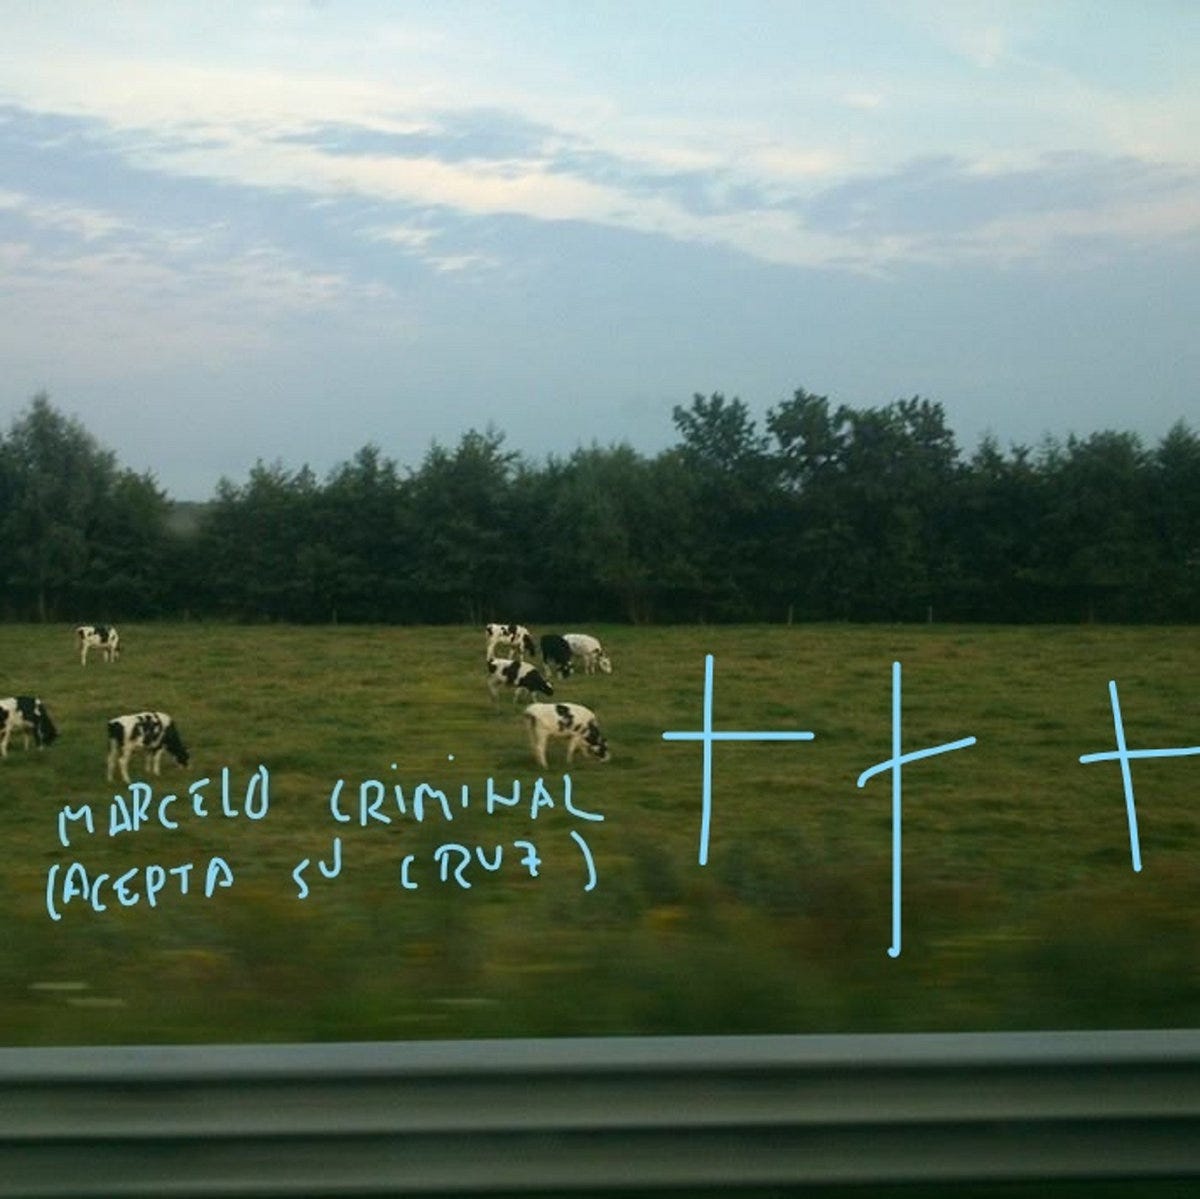 MARCELO CRIMINAL
(ACEPTA SU CRUZ)